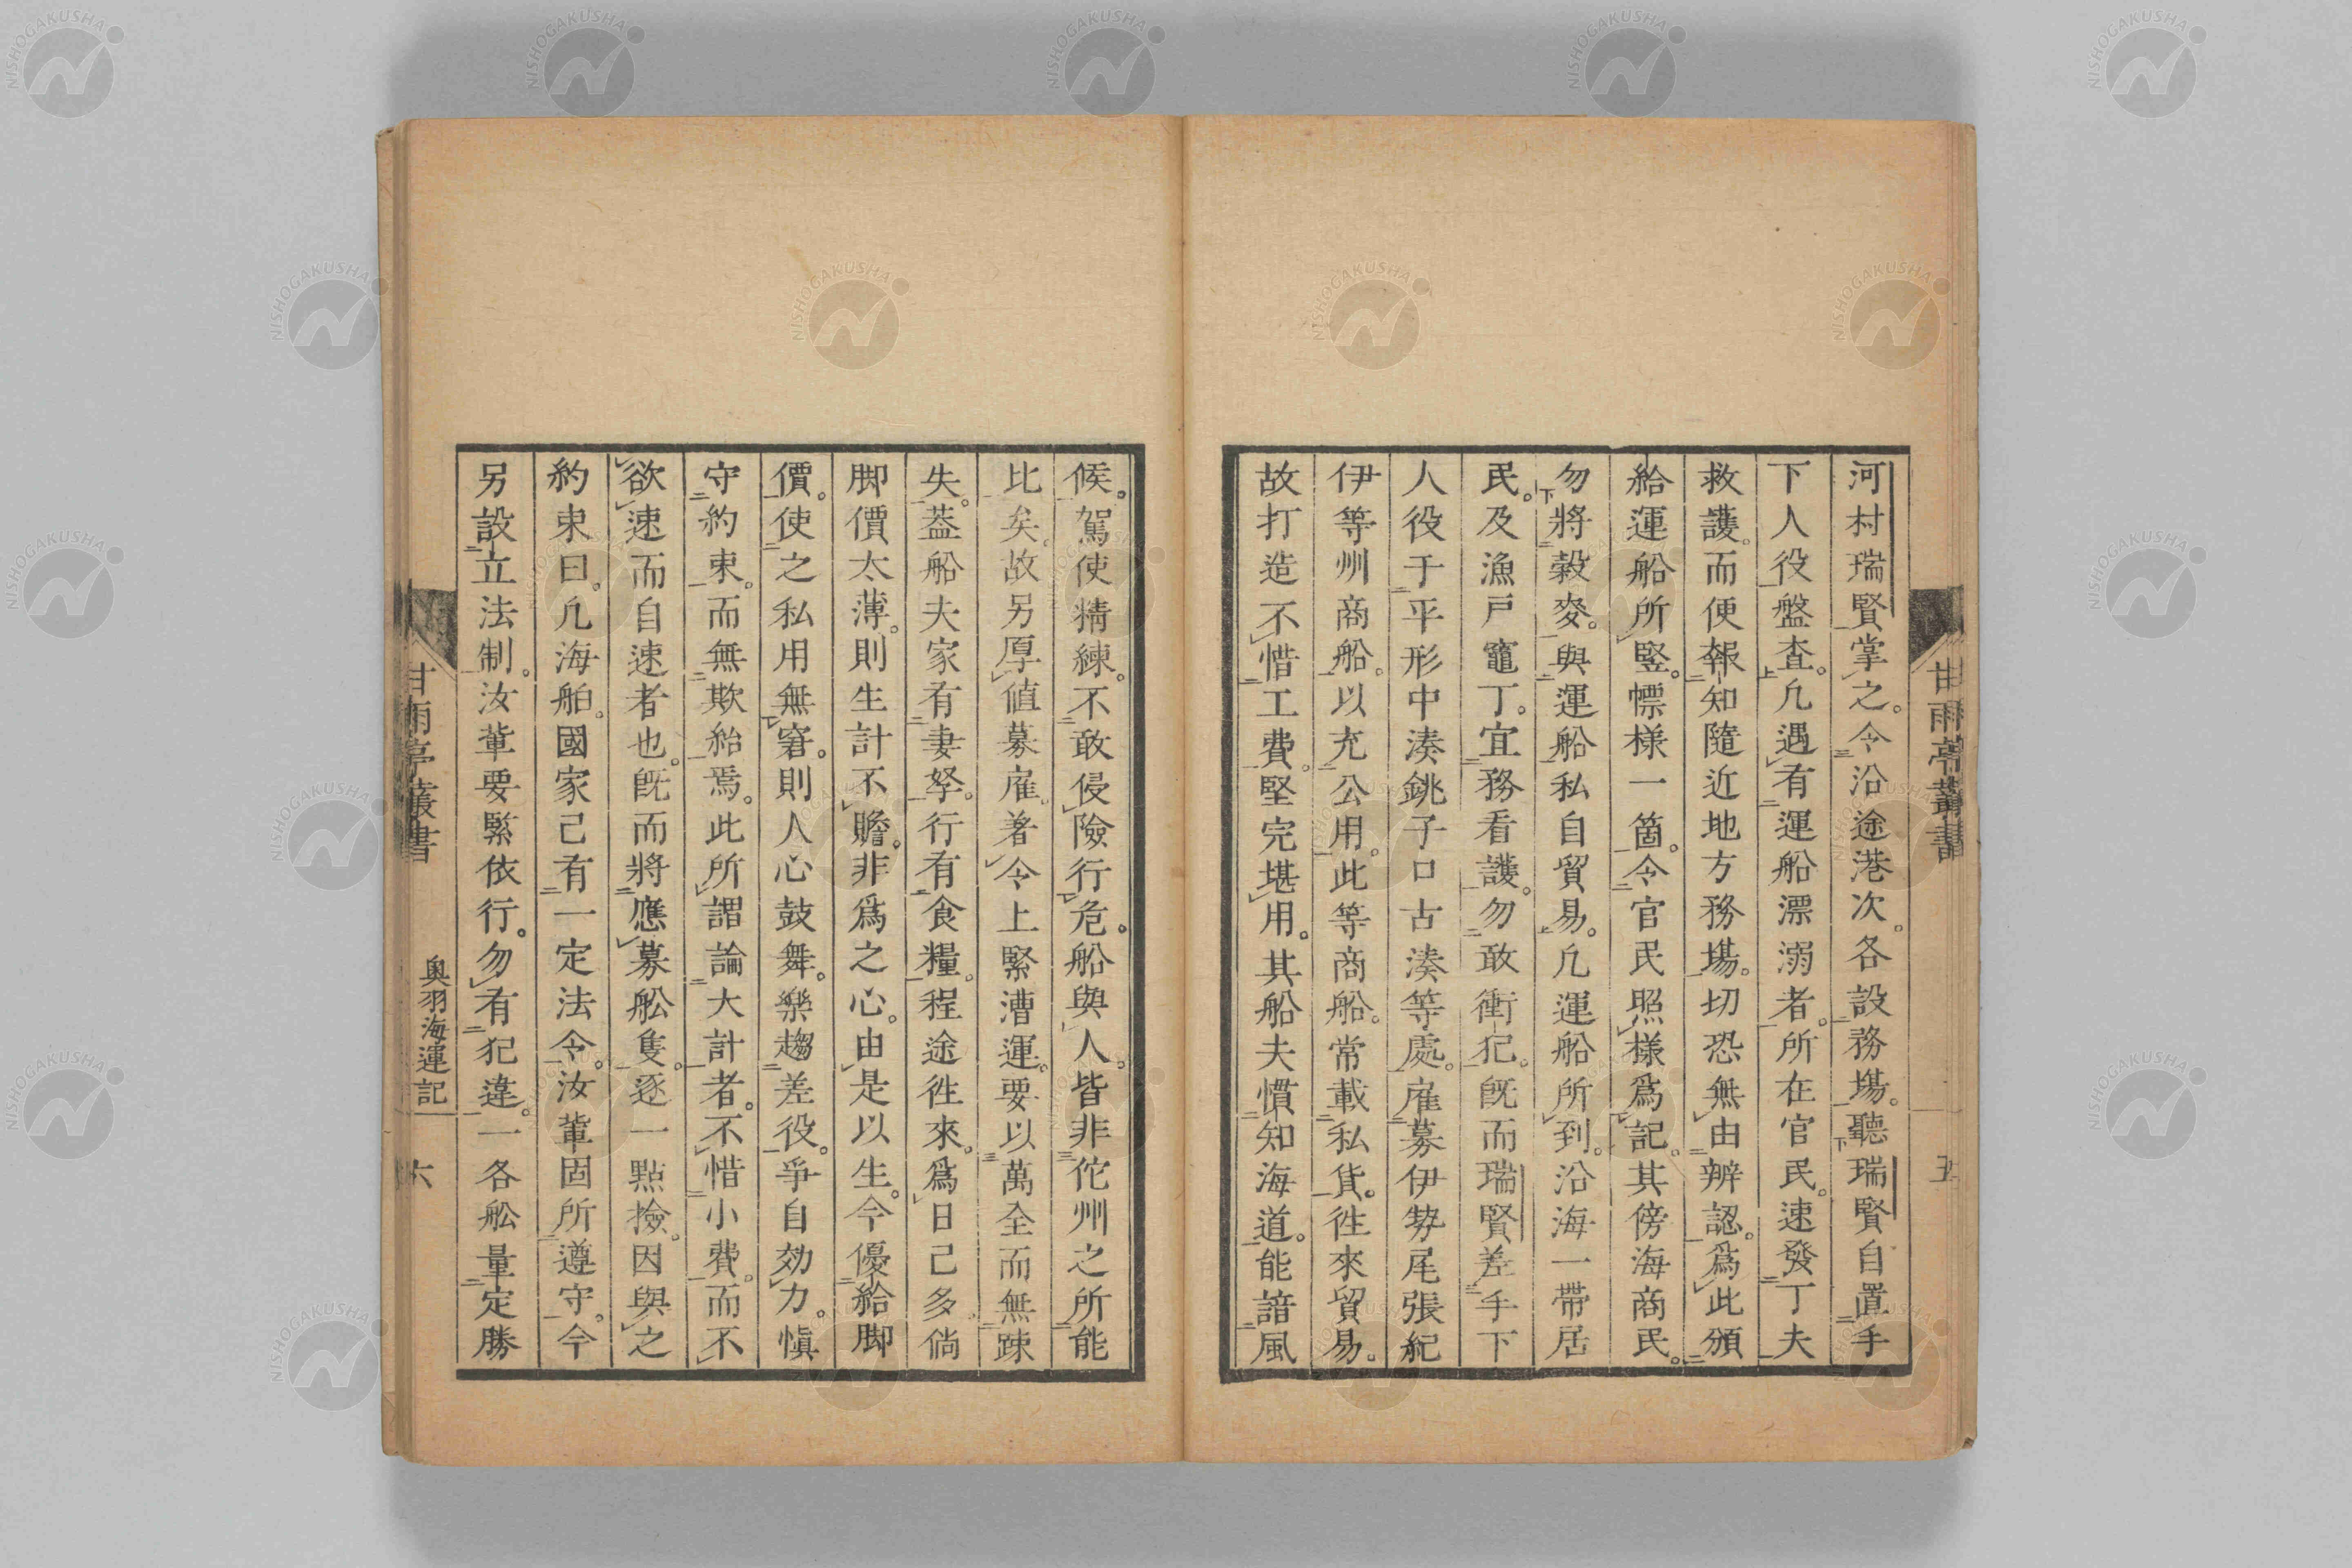 甘雨亭叢書
五
河村瑞賢掌之。令沿途港次。各設務場。聽瑞賢自置手
下人役盤査。凢遇有運船漂溺者。所在官民。速發丁夫
救護。而便報知隨近地方務場。切恐無由辨認。爲此頒
給運船所竪。幖様一箇。令官民照様爲記。其傍海商民。
勿將穀麥。與運船私自貿易。凢運船所到。沿海一帶居
民。及漁戸竈丁。宜務看護。勿敢衝犯。旣而瑞賢差手下
人役于平形中湊銚子口古湊等處。雇募伊勢尾張紀
伊等州商船。以充公用。此等商船。常載私貨。徃來貿易。
故打造不惜工費。堅完堪用。其船夫慣知海道。能諳風
候。駕使精練。不敢侵險行危。船與人。皆非佗州之所能
比矣。故另厚値募雇。着令上緊漕運。要以萬全而無踈
失。葢船夫家有妻孥。行有食糧。程途徃來。爲日已多。倘
脚價太薄。則生計不贍。非爲之心。由是以生。今優給脚
價。使之私用無窘。則人心鼓舞。樂趨差役。爭自効力。愼
守約束。而無欺紿焉。此所謂論大計者。不惜小費。而不
欲速而自速者也。旣而將應募舩隻。逐一點撿。因與之
約束曰。凢海舶。國家已有一定法令。汝軰固所遵守。今
另設立法制。汝軰要緊依行。勿有犯違。一各舩量定勝
甘雨亭叢書
奥羽海運記
六
NISHOGAKUSHA